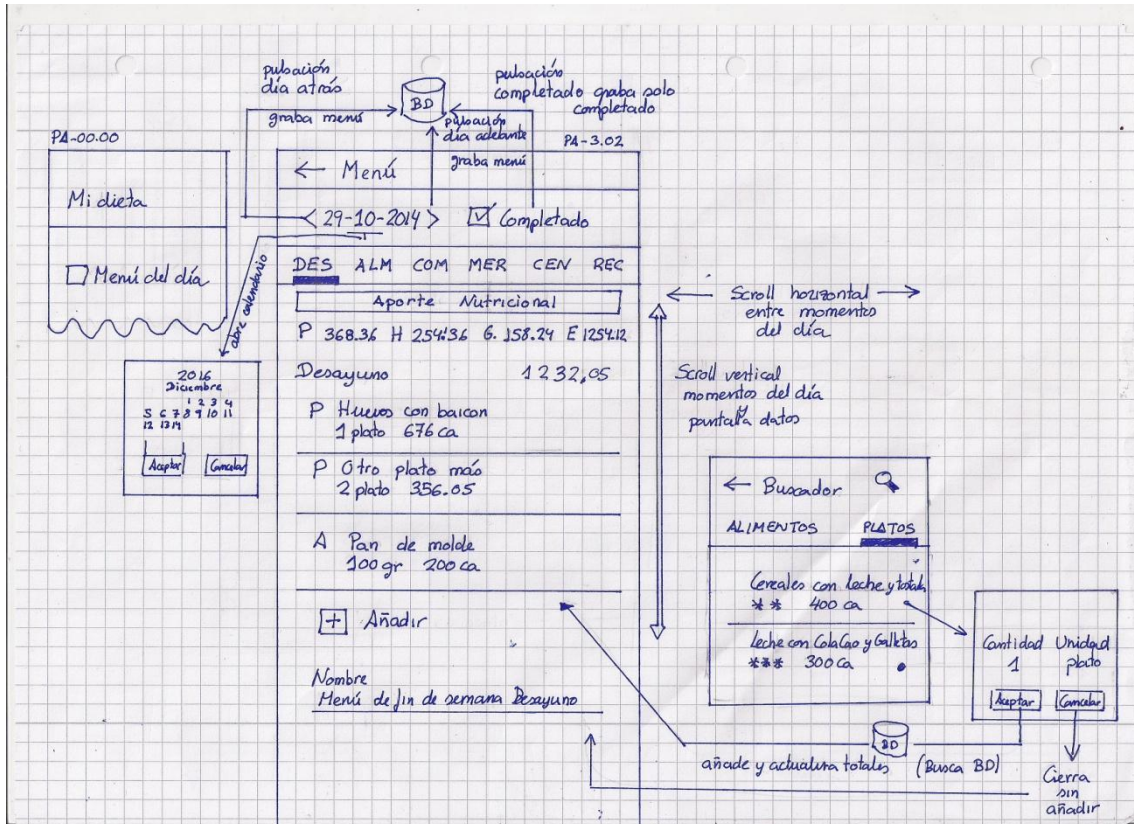 pulsación
día atrás
graba menú
BD
pulsación
día adelante
graba menú
pulsación
completado graba solo
completado
PA-00.00
Mi dieta
Menú del día
abre calendario
2016
Diciembre
1 2 3 4
5 6 7 8 9 10 11
12 13 14
Aceptar Cancelar
PA-3.02
← Menú
< 29-10-2014 > Completado
DES ALM COM MER CEN REC
Aporte Nutricional
P 368.36 H 254.36 G. 158.24 E 1254.12
Desayuno 1232,05
P Huevos con baicon
1 plato 676 ca
P Otro plato más
2 plato 356.05
A Pan de molde
100 gr 200 ca
+ Añadir
Nombre
Menú de fin de semana Desayuno
← Scroll horizontal →
entre momentos
del día
Scroll vertical
momentos del día
y
pantalla datos
← Buscador
ALIMENTOS PLATOS
Cereales con leche y tostada
** 400 ca
Leche con ColaCao y Galletas
*** 300 ca
Cantidad Unidad
1 plato
Aceptar Cancelar
BD
añade y actualiza totales (Busca BD)
Cierra
sin
añadir